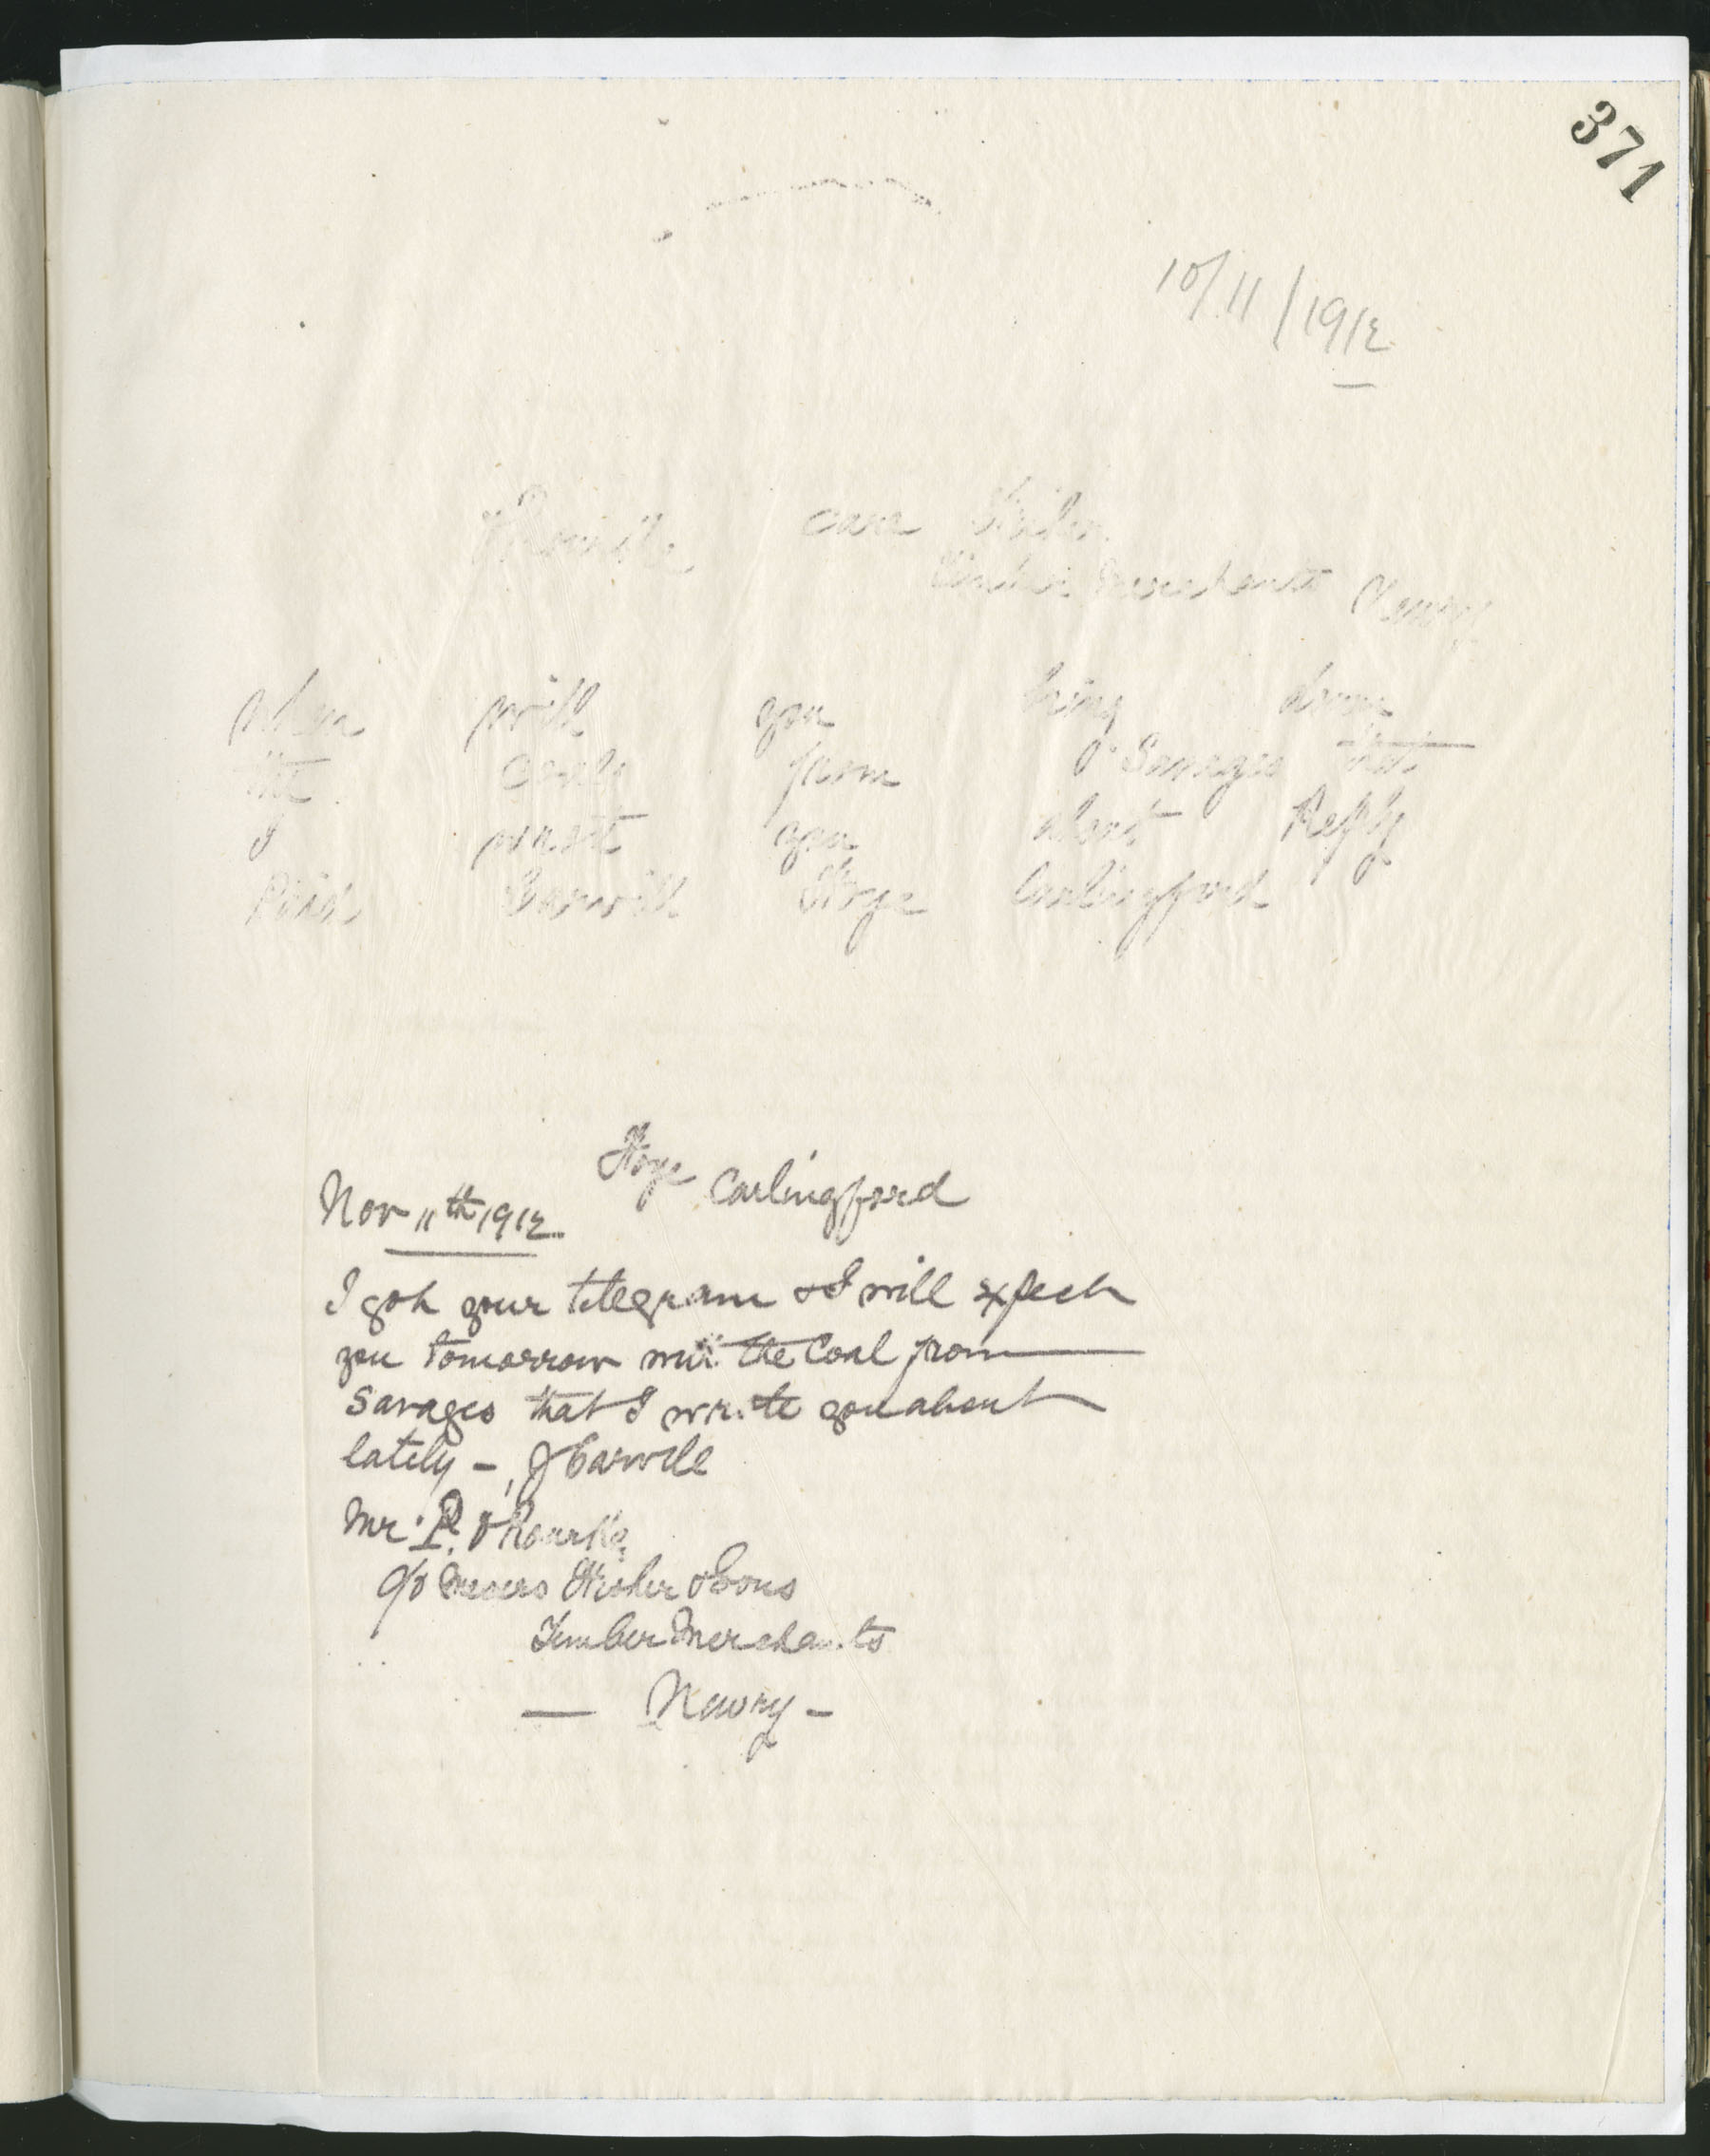 371
10/11/1912
O'Rourke care Fisher
Timber Merchants Newry
When will you bring down
the coals from O'Savages that
I wrote you about Reply
Paid Carvill Grange Carlingford
Carlingford
Nov 11th 1912
I got your telegram & I will expect
you tomorrow with the Coal from
Savages that I wrote you about
lately - J Carvill
Mr P. O'Rourke
c/o Messrs Fisher & Sons
Timber Merchants
— Newry -